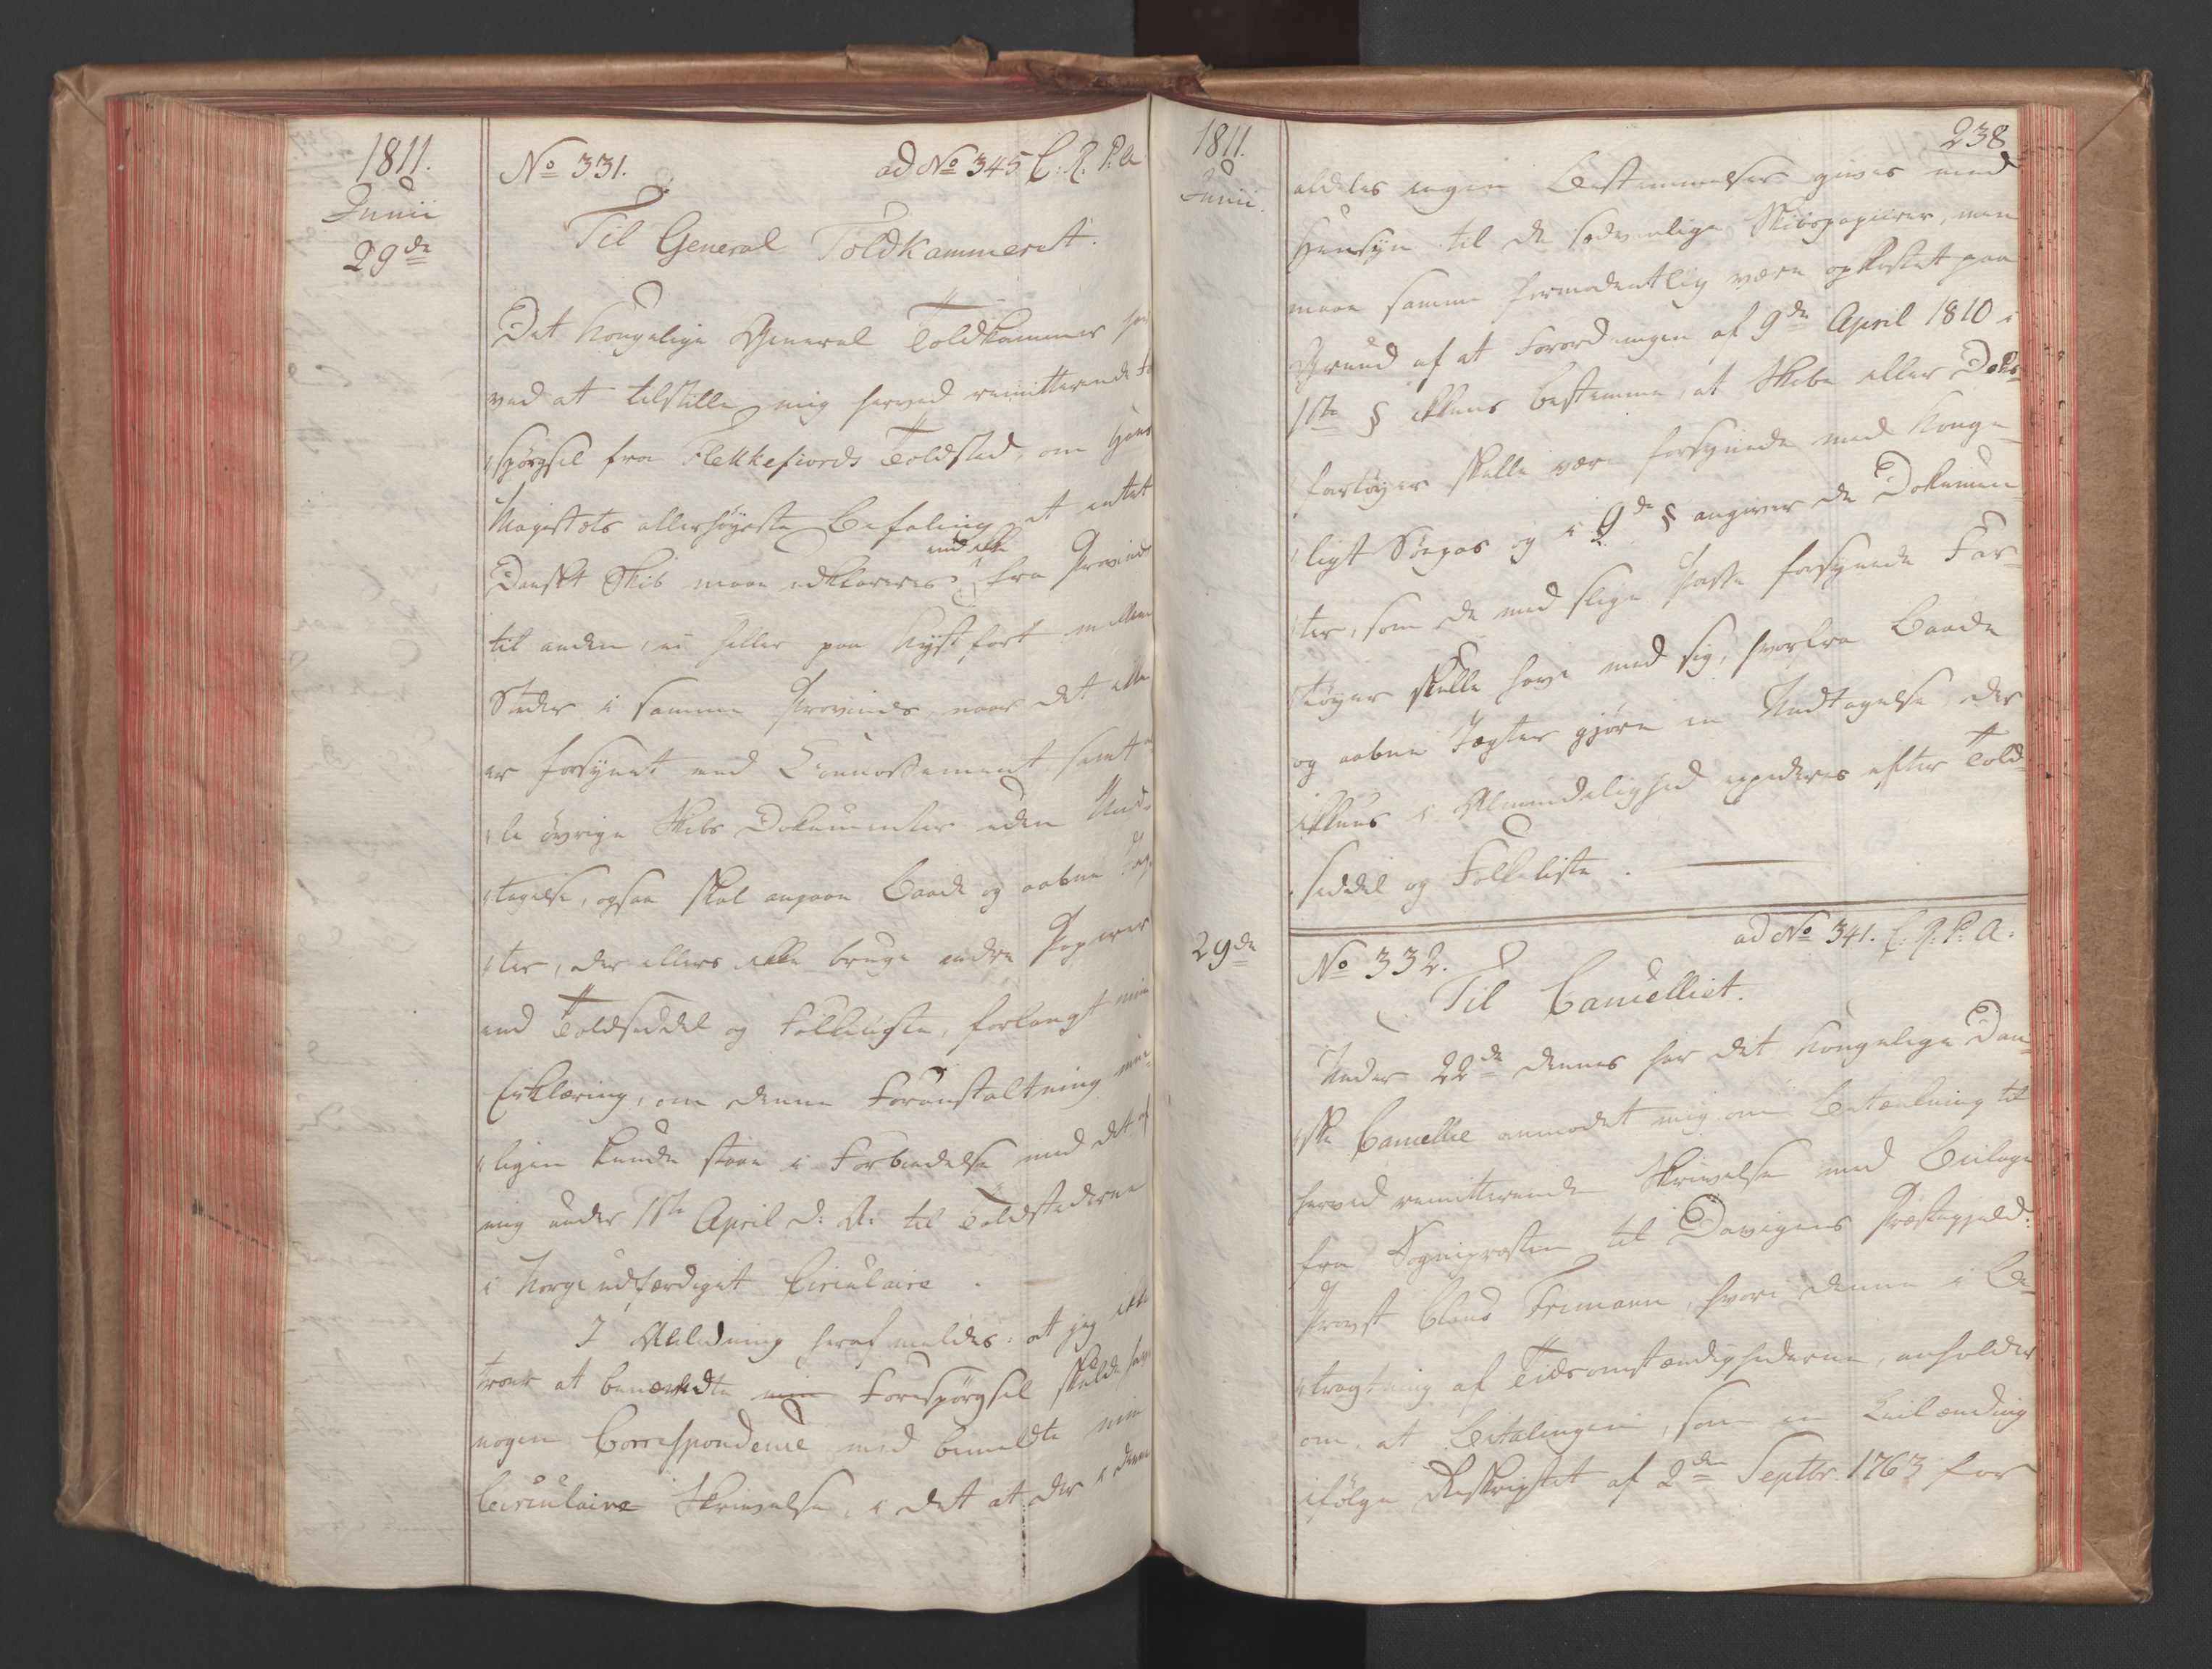 1811.
Junii
29de
No 331.
ad No 345 C: R. P. A
Til General Toldkammeret.
Det Kongelige General Toldkammer har
ved at tilstille mig herved remitterende Fo
spørgsel fra Flekkefiords Toldsted, om Hans
Majestæts allerhøyeste Befaling at intet
Danskt Skib maae udklareres, end ikke fra Provinds
til anden, ei heller paa Kystfart mellem
Steder i samme Provinds, naar det ikke
er forsynet med Connossement samt
le øvrige Skibs Dokumenter uden Und-
tagelse, ogsaa skal angaae Baade og aabne Jag-
ter, der ellers ikke bruge andre Papirer
end Toldseddel og Folkeliste, forlangt min
Erklæring, om denne Foranstaltning mue-
ligen kunde staae i Forbindelse med det af
mig under 1ste April d: A: til Toldstederne
i Norge udfærdiget Circulaire.
I Anledning heraf meldes: at jeg ikke
troer at benævndte min Forespørgsel skulde have
nogen Correspondence med bemeldte min
Circulaire Skrivelse, i det at der i denne
1811.
Junii.
238
aldeles ingen Bestemmelser gives med
Hensyn til de sædvanlige Skibspapiirer, men
maae samme formodentlig være opkastet paa
Grund af at Forordningen af 9de April 1810 i
1ste § ikkuns bestemme, at Skibe eller Deks-
fartøyer skulle være forsynede med Konge-
ligt Søepas og i 9de § angiver de Dokumen-
ter, som de med slige Passe forsynede Far-
tøyer skulle have med sig, hvorfra Baade
og aabne Jagter gjøre en Undtagelse, der
ikkuns i Almindelighed expederes efter Told-
seddel og Folkeliste.
29de
No 332.
ad No 341. C: R: P: A:
Til Cancelliet.
Under 22de dennes har det Kongelige Dan-
ske Cancellie anmodet mig om Betænkning til
herved remitterende Skrivelse med Beilage
fra Sognepræsten til Davigens Præstegjeld:
Provst Claus Frimann, hvori denne i Be-
tragtning af Tidsomstændighederne, anholder
om, at Betalingen, som en Leilænding
ifølge Reskriptet af 2den Septbr. 1763 for